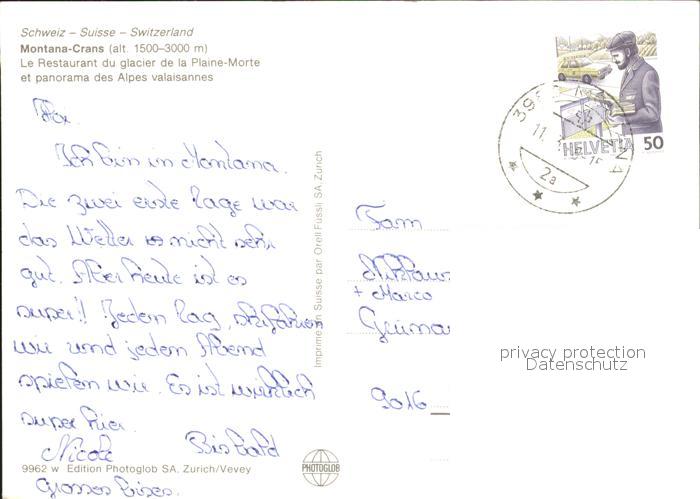 Schweiz – Suisse – Switzerland
Montana-Crans (alt. 1500–3000 m)
Le Restaurant du glacier de la Plaine-Morte
et panorama des Alpes valaisannes
Hoi.
Ich bin in Montana.
Die zwei erste Tage war
das Wetter nicht sehr
gut. Aber heute ist es
super!! Jedem Tag skifahren
wir und jedem Abend
spielen wir. Es ist wirklich
super hier.
Nicole Bis bald
Grosses bises.
9962 w Edition Photoglob SA. Zurich/Vevey
PHOTOGLOB
Imprimé en Suisse par Orell Füssli SA. Zurich
HELVETIA 50
11.
2a
Fam
+ Marco
9016
privacy protection
Datenschutz